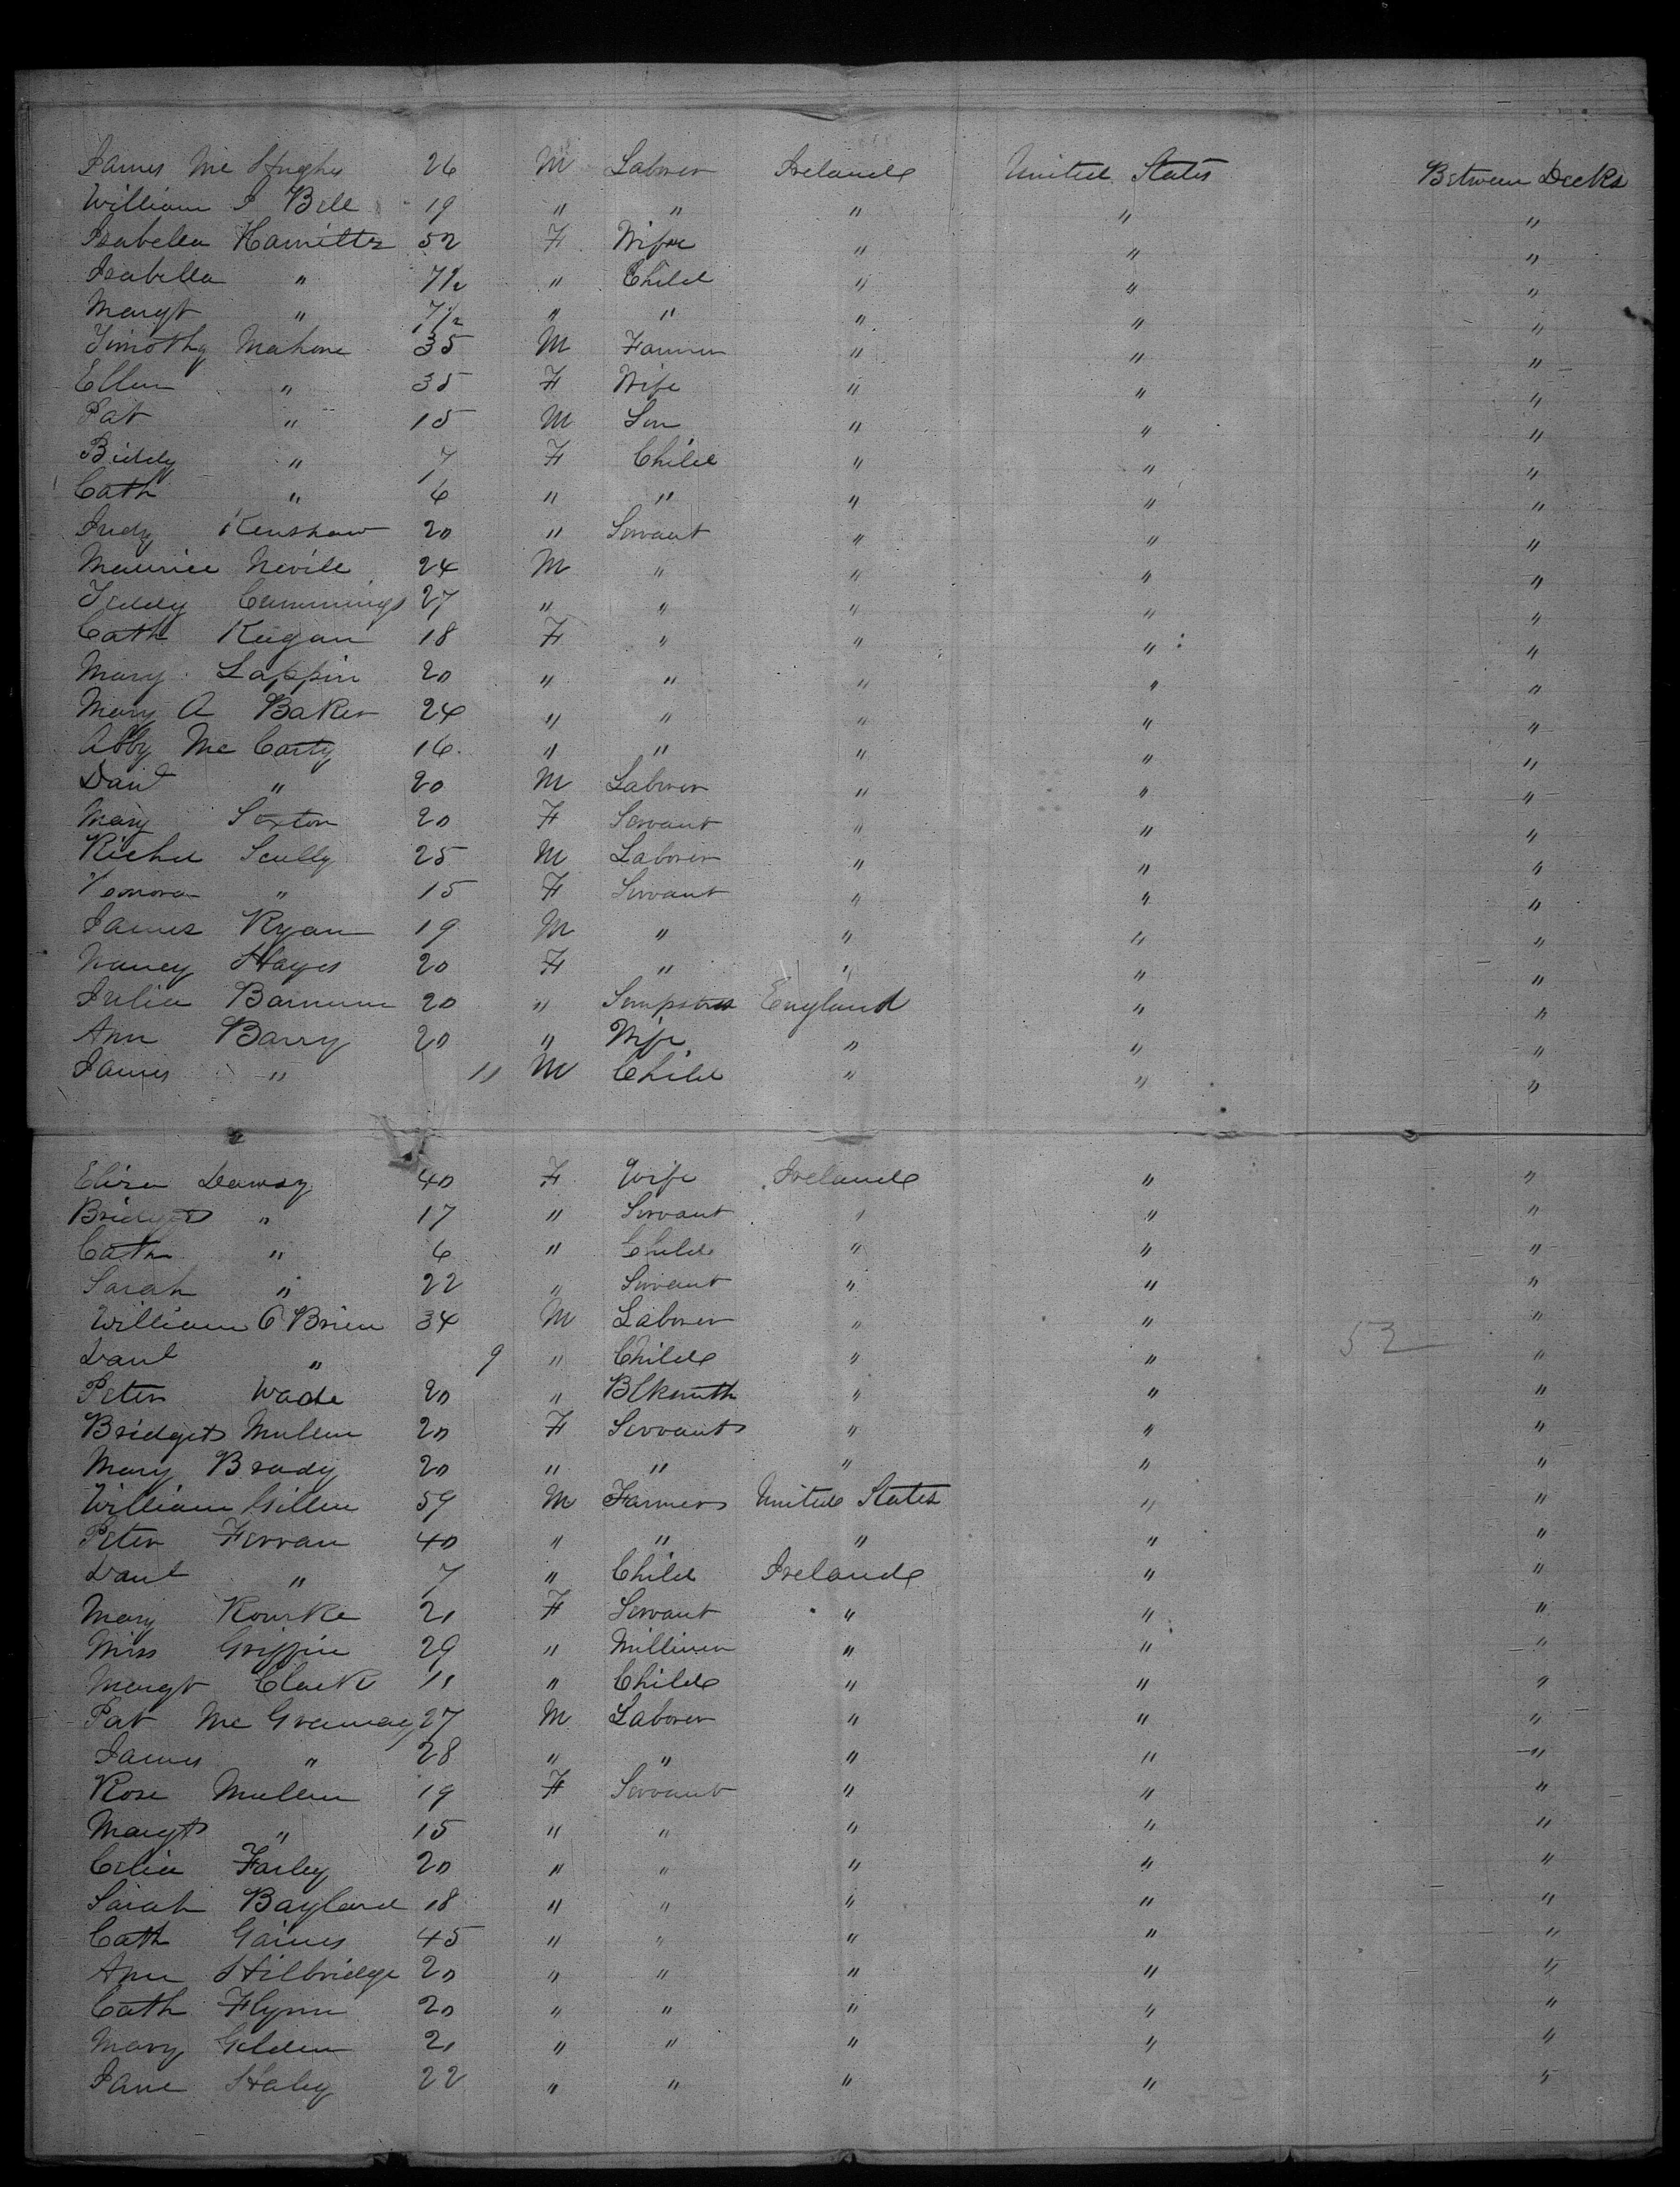 James Mc Hughes 26 M Laborer Ireland United States Between Decks
William J Bell 19 " " " " "
Isabella Hamilton 52 F Wife " " "
Isabella " 7½ " Child " " "
Margt " 7½ " " " " "
Timothy Mahone 35 M Farmer " " "
Ellen " 35 F Wife " " "
Pat " 15 M Son " " "
Biddy " 7 F Child " " "
Cath " 6 " " " " "
Judy Kenshaw 20 " Servant " " "
Maurice Nevile 24 M " " " "
Teddy Cummings 27 " " " " "
Cath Keegan 18 F " " " "
Mary Lappin 20 " " " " "
Mary A Baker 24 " " " " "
Abby Mc Carty 16 " " " " "
Danl " 20 M Laborer " " "
Mary Sexton 20 F Servant " " "
Richd Scully 25 M Laborer " " "
Honora " 15 F Servant " " "
James Ryan 19 M " " " "
Nancy Hayes 20 F " " " "
Julia Barnum 20 " Sempstress England " "
Ann Barry 20 " Wife " " "
James " 11 M Child " " "
Eliza Dawsy 40 F Wife Ireland " "
Bridget " 17 " Servant " " "
Cath " 6 " Child " " "
Sarah " 22 " Servant " " "
William O Brien 34 M Laborer " " "
Danl " 9 " Child " " 53 "
Peter Wade 20 " Blksmith " " "
Bridget Mullen 20 F Servant " " "
Mary Brady 20 " " " " "
William Gillen 59 M Farmer United States " "
Peter Ferran 40 " " " " "
Danl " 7 " Child Ireland " "
Mary Rourke 21 F Servant " " "
Miss Griffin 29 " Milliner " " "
Margt Clark 11 " Child " " "
Pat Mc 27 M Laborer " " "
James " 28 " " " " "
Rose Mullen 19 F Servant " " "
Margt " 15 " " " " "
Celia Farley 20 " " " " "
Sarah Bayland 18 " " " " "
Cath Gaines 45 " " " " "
Ann Hilbridge 20 " " " " "
Cath Flynn 20 " " " " "
Mary Gelden 21 " " " " "
Jane Haley 22 " " " " "